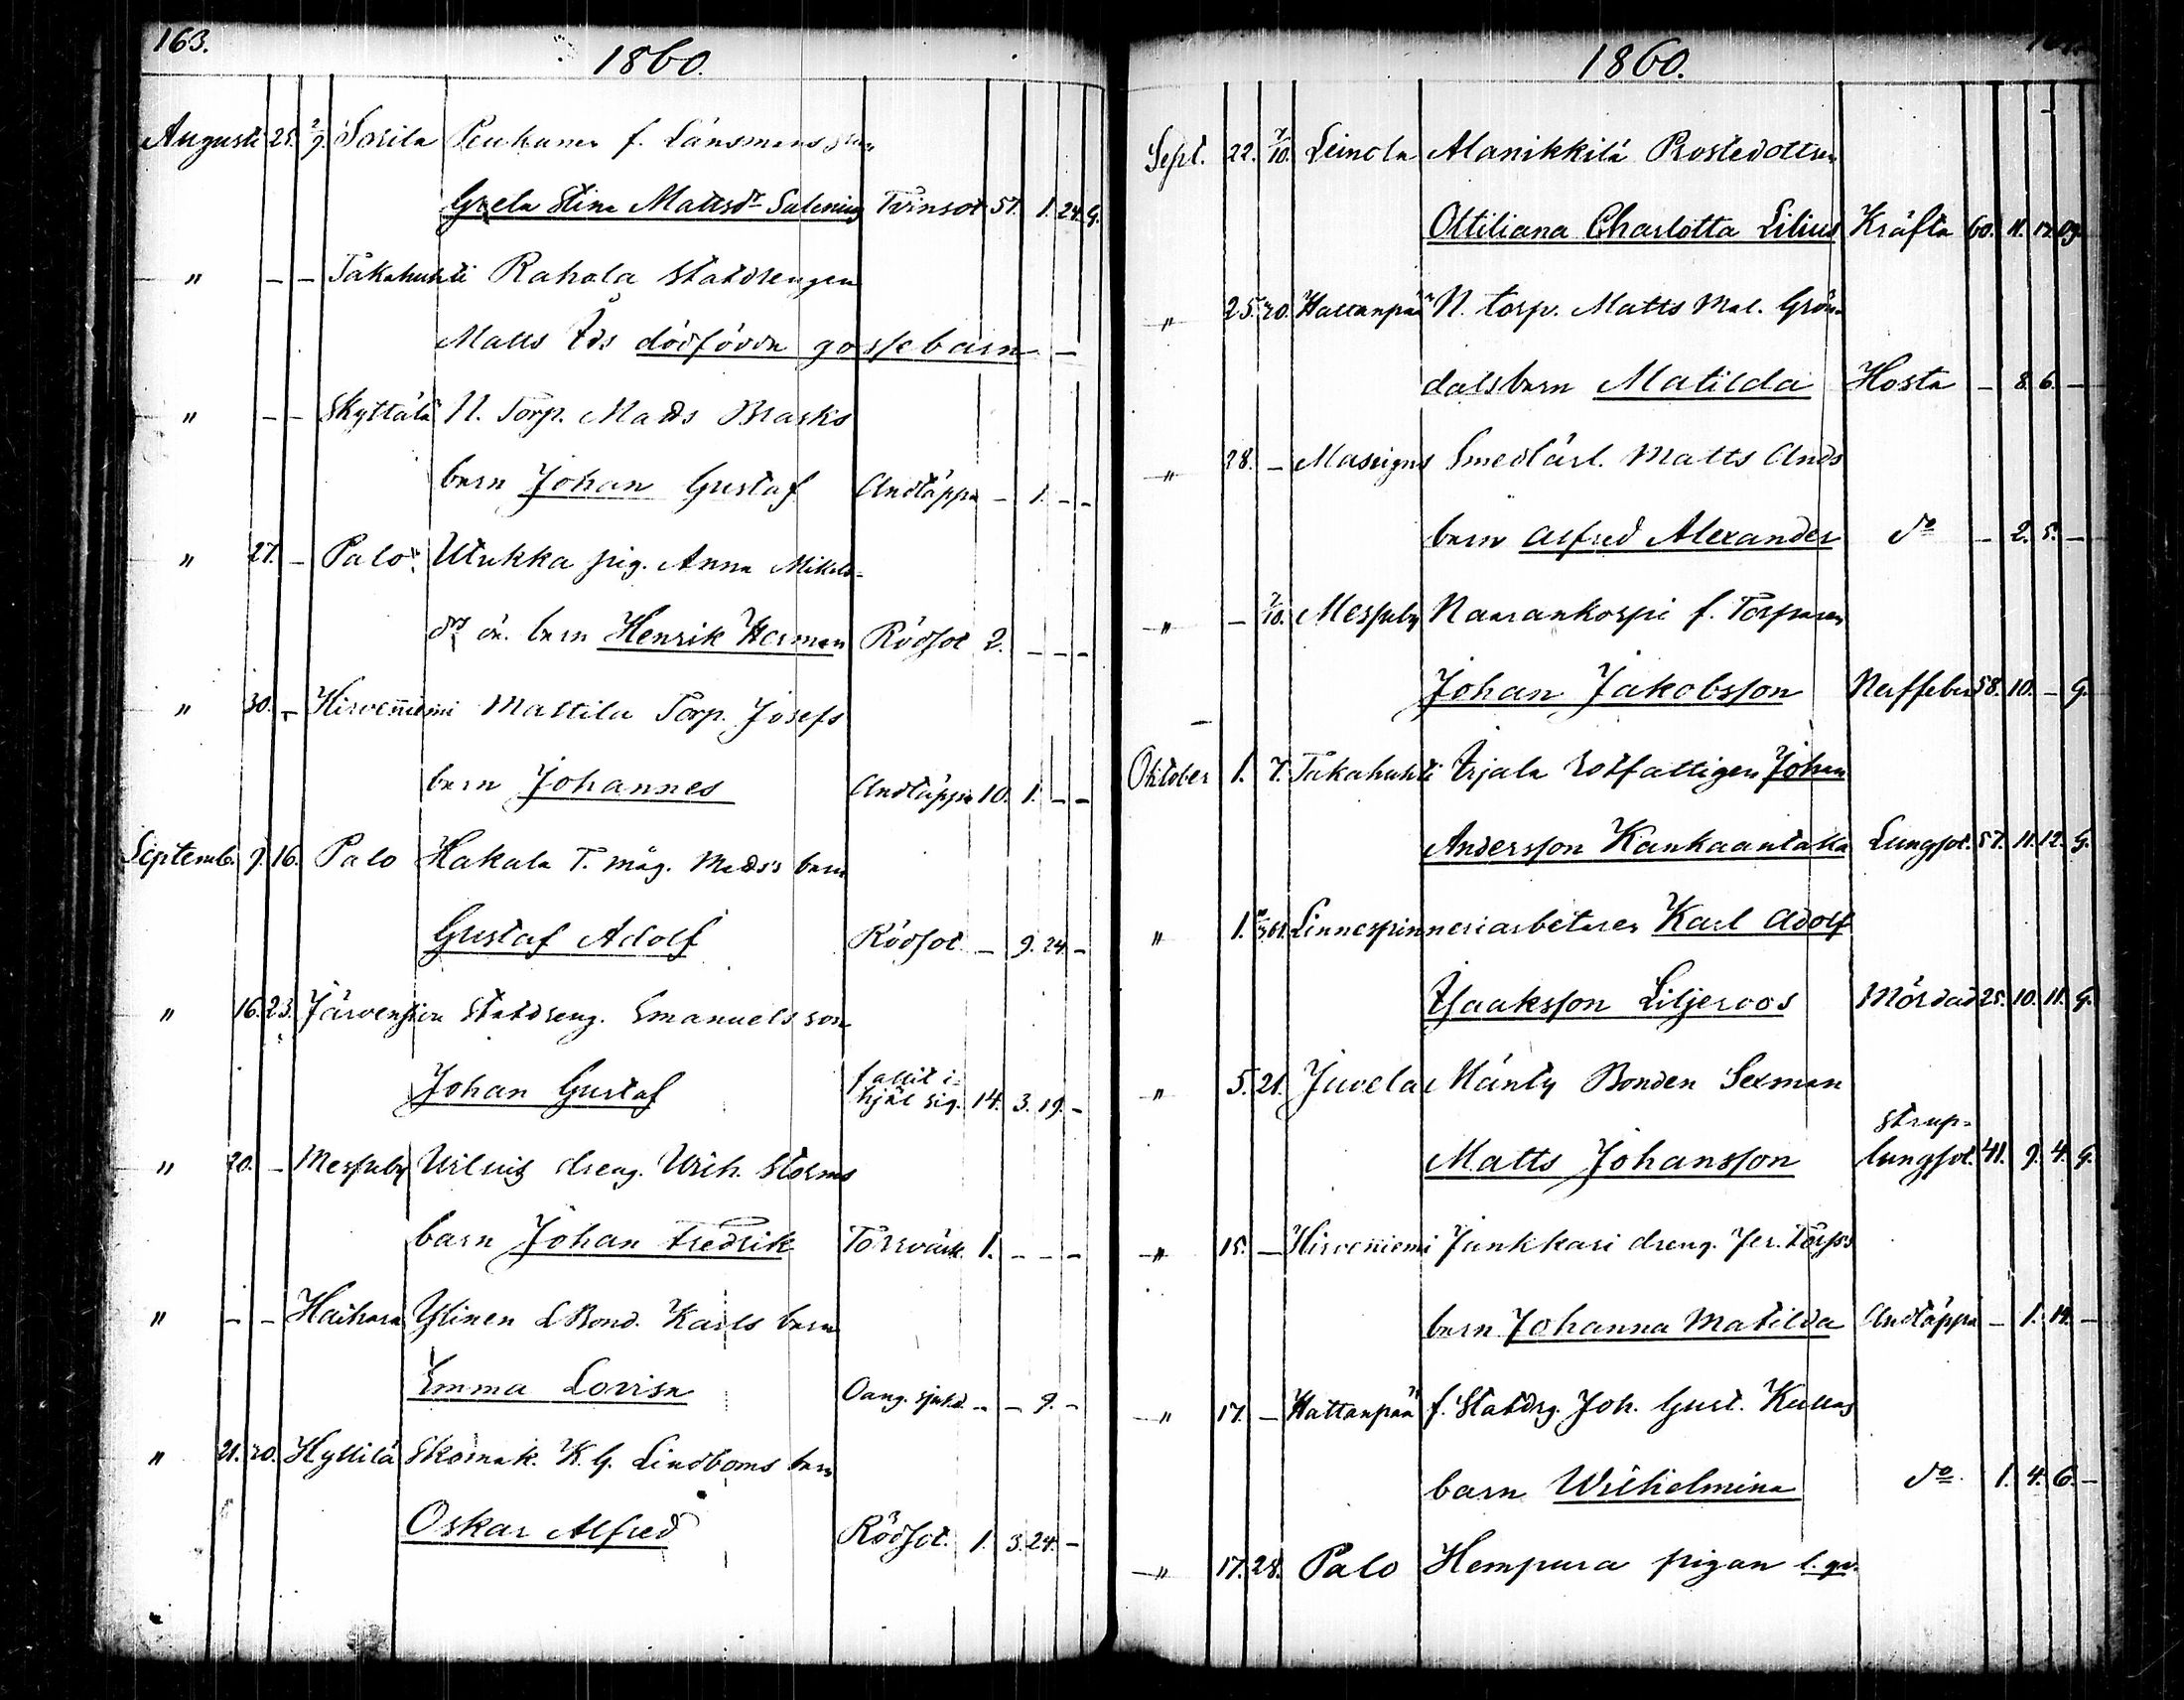 163.
1860.
Augusti 25. 2/9. Sorila Penkama f. Länsmans
Greta Stina Mattsdr Salenius Tvinsot 57. 1. 24. G.
" - - Takahuhti Rahola Statdrengen
Matts dödfödda gossebarn -
" - - Skyttälä N. Torp. Matts Brasks
barn Johan Gustaf Andtäppa - 1. - -
" 27. - Palo Utukka pig. Anna Mikels-
drs oä. barn Henrik Herman Rödsot 2. - - -
" 30. - Hirvenniemi Mattila Torp. Josefs
barn Johannes Andtäppa 10. 1. - -
Septemb. 9. 16. Palo Hakala T. måg. Matts's barn
Gustaf Adolf Rödsot - 9. 24. -
" 16. 23. Järvensivu Statdreng. Emanuels son
Johan Gustaf fallit i-
hjäl sig. 14. 3. 19. -
" 20. - Messuby Wilnis dreng. Wilh. Storms
barn Johan Fredrik Torrvärk 1. - - -
" - - Haihara Ylinen LBond. Karls barn
Emma Lovisa Oang. sjukd. - - 9. -
" 21. 30. Hyllilä Skomak. K. G. Lindboms barn
Oskar Alfred Rödsot. 1. 3. 24. -
1860.
Sept. 22. 7/10. Leinola Alanikkilä Prostedottren
Ottiliana Charlotta Lilius Kräfta 60. 11. 17. Og.
" 25. 30. Hattanpää N. torp. Matts Mal. Grön-
dals barn Matilda Hosta - 8. 6. -
" 28. - Smedlärl. Matts Ands
barn Alfred Alexander do - 2. 5. -
" - 7/10. Messuby Naarankorpi f. Torparen
Johan Jakobsson Nerffeber 58. 10. - G.
Oktober 1. 7. Takahuhti Irjala rotfattigen Johan
Andersson Kankaantakka Lungsot. 57. 11. 12. G.
" 1. Linnespinneriarbetaren Karl Adolf
Isaaksson Liljeroos Mördad 25. 10. 11. G.
" 5. 21. Juvela Mänty Bonden Sexman
Matts Johansson strup-
lungsot. 41. 9. 4. G.
" 15. - Hirvenniemi Junkkari dreng. Jer. Törfss
barn Johanna Matilda Andtäppa - 1. 14. -
" 17. - Hattanpää f. Statdrg. Joh. Gust. Kullas
barn Wilhelmina do. 1. 4. 6. -
" 17. 28. Palo Hempura pigan